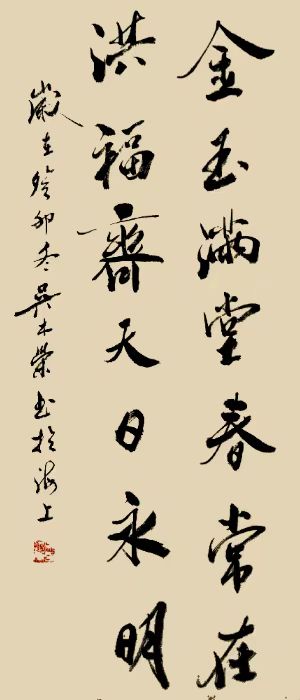 金玉满堂春常在
洪福齊天日永明
歲在癸卯冬吴木榮書於海上